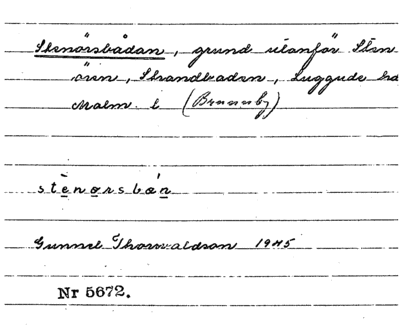 Stenörsbådan, grund utanför Sten
ören, Strandbaden, Luggude hd
Malm. l (Brunnby)
stènørsbǽn
Gunnel Thorvaldson 1945
Nr 5672.